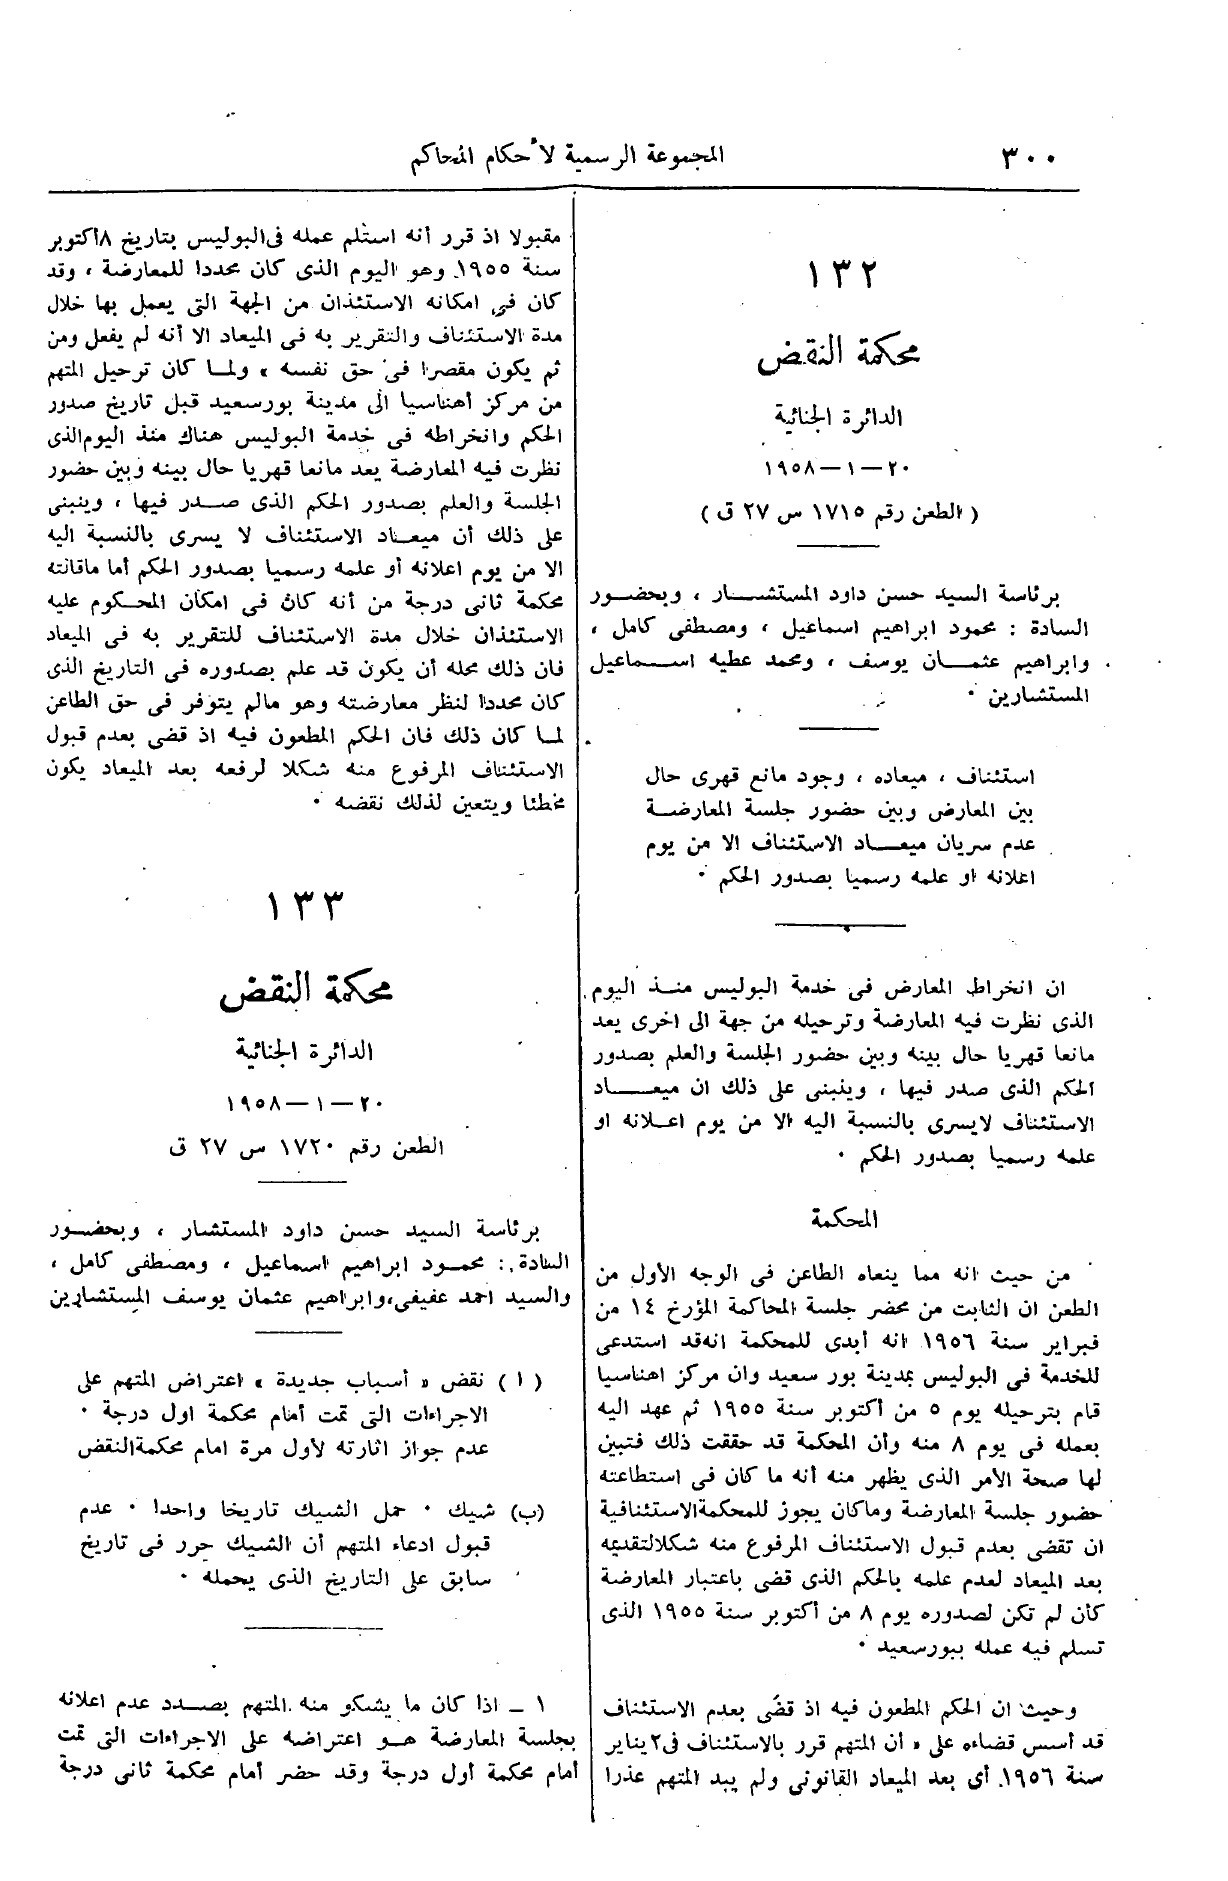 ٣٠٠
المجموعة الرسمية لأحكام المحاكم
١٣٢
محكمة النقض
الدائرة الجنائية
٢٠ — ١ — ١٩٥٨
( الطعن رقم ١٧١٥ س ٢٧ ق )
برئاسة السيد حسن داود المستشـــار ، وبحضـور
السادة : محمود ابراهيم اسماعيل ، ومصطفى كامل ،
وابراهيم عثمـــان يوسف ، ومحمد عطيه اســـماعيل
المستشارين ٠
استئناف ، ميعاده ، وجود مانع قهرى حال
بين المعارض وبين حضور جلسة المعارضـة
عدم سريان ميعـــاد الاستئناف الا من يوم
اعلانه او علمه رسميا بصدور الحكم ٠
ان انخراط المعارض فى خدمة البوليس منـذ اليوم
الذى نظرت فيه المعارضة وترحيله من جهة الى اخرى يعد
مانعا قهريا حال بينه وبين حضور الجلسة والعلم بصدور
الحكم الذى صدر فيها ، وينبنى على ذلك ان ميعـــاد
الاستئناف لايسرى بالنسبة اليه الا من يوم اعـلانه او
علمه رسميا بصدور الحكم ٠
المحكمة
من حيث انه مما ينعاه الطاعن فى الوجه الأول من
الطعن ان الثابت من محضر جلسة المحاكمة المؤرخ ١٤ من
فبراير سنة ١٩٥٦ انه أبدى للمحكمة انه قد استدعى
للخدمة فى البوليس بمدينة بور سعيد وان مركز اهناسيا
قام بترحيله يوم ٥ من أكتوبر سنة ١٩٥٥ ثم عهد اليه
بعمله فى يوم ٨ منه وأن المحكمة قد حققت ذلك فتبين
لها صحة الأمر الذى يظهر منه أنه ما كان فى استطاعته
حضور جلسة المعارضة وماكان يجوز للمحكمة الاستئنافية
ان تقضى بعدم قبول الاستئناف المرفوع منه شكلا لتقديمه
بعد الميعاد لعدم علمه بالحكم الذى قضى باعتبار المعارضة
كأن لم تكن لصدوره يوم ٨ من أكتوبر سنة ١٩٥٥ الذى
تسلم فيه عمله ببورسعيد ٠
وحيث ان الحكم المطعون فيه اذ قضى بعدم الاستئناف
قد أسس قضاءه على « أن المتهم قرر بالاستئناف فى ٢ يناير
سنة ١٩٥٦ أى بعد الميعاد القانونى ولم يبد المتهم عذرا
مقبولا اذ قرر أنه استلم عمله فى البوليس بتاريخ ٨ اكتوبر
سنة ١٩٥٥ وهو اليوم الذى كان محددا للمعارضة ، وقد
كان فى امكانه الاستئذان من الجهة التى يعمل بها خلال
مدة الاستئناف والتقرير به فى الميعاد الا أنه لم يفعل ومن
ثم يكون مقصرا فى حق نفسه » ولمـا كان ترحيل المتهم
من مركز أهناسيا الى مدينة بورسعيد قبل تاريخ صدور
الحكم وانخراطه فى خدمة البوليس هناك منذ اليوم الذى
نظرت فيه المعارضة يعد مانعا قهريا حال بينه وبين حضور
الجلسة والعلم بصدور الحكم الذى صـــدر فيها ، وينبنى
على ذلك أن ميعـاد الاستئناف لا يسرى بالنسبة اليه
الا من يوم اعلانه أو علمه رسميا بصدور الحكم أما ماقالته
محكمة ثانى درجة من أنه كان فى امكان المحـكوم عليه
الاستئذان خلال مدة الاستئناف للتقرير به فى الميعاد
فان ذلك محله أن يكون قد علم بصدوره فى التاريخ الذى
كان محددا لنظر معارضته وهو مالم يتوفر فى حق الطاعن
لمـا كان ذلك فان الحكم المطعون فيه اذ قضى بعدم قبول
الاستئناف المرفوع منه شكلا لرفعه بعد الميعاد يكون
مخطئا ويتعين لذلك نقضه ٠
١٣٣
محكمة النقض
الدائرة الجنائية
٢٠ — ١ — ١٩٥٨
الطعن رقم ١٧٢٠ س ٢٧ ق
برئاسة السيد حسن داود المستشار ، وبحضـور
السادة : محمـود ابراهيم اسماعيل ، ومصطفى كامل ،
والسيد احمد عفيفى ، وابراهيم عثمان يوسف المستشارين
( ا ) نقض « أسباب جديدة » اعتراض المتهم على
الاجراءات التى تمت أمام محكمة اول درجة ٠
عدم جواز اثارته لأول مرة امام محكمة النقض
(ب) شيك ٠ حمل الشيك تاريخا واحدا ٠ عدم
قبول ادعاء المتهم أن الشيك حرر فى تاريخ
سابق على التاريخ الذى يحمله ٠
١ ـ اذا كان ما يشكو منه المتهم بصـــدد عدم اعلانه
بجلسة المعارضة هـو اعتراضه على الاجراءات التى تمت
أمام محكمة أول درجة وقد حضر أمام محكمة ثانى درجة